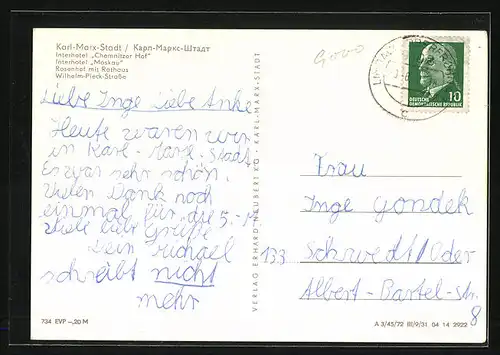 Karl-Marx-Stadt / Карл-Маркс-Штадт
Interhotel „Chemnitzer Hof"
Interhotel „Moskau"
Rosenhof mit Rathaus
Wilhelm-Pieck-Straße
Liebe Inge Liebe Anke
Heute waren wir
in Karl-Marx-Stadt
Es war sehr schön.
Vielen Dank noch
einmal für die 5.-M
Viele liebe Grüße
Dein Michael
schreibt nicht
mehr
734 EVP -,20 M
VERLAG ERHARD NEUBERT KG · KARL-MARX-STADT
10
DEUTSCHE
DEMOKRATISCHE REPUBLIK
Frau
Inge Gondek
133 Schwedt/Oder
Albert-Bartel-Str.
8
A 3/45/72 III/9/31 04 14 2922